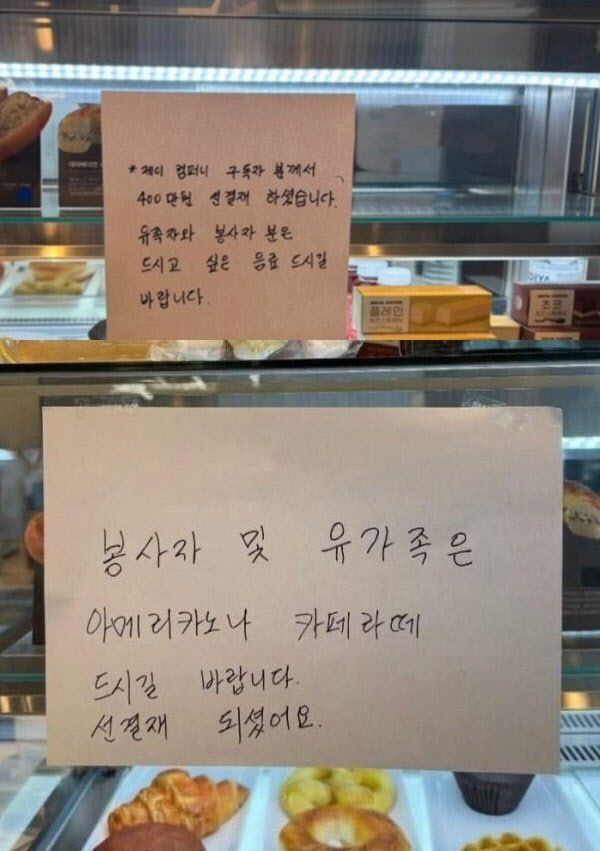 *제이 컴퍼니 구독자 분께서
400만원 선결재 하셨습니다.
유족자와 봉사자 분은
드시고 싶은 음료 드시길
바랍니다.
플레인
초코
봉사자 및 유가족은
아메리카노나 카페라떼
드시길 바랍니다.
선결재 되셨어요.